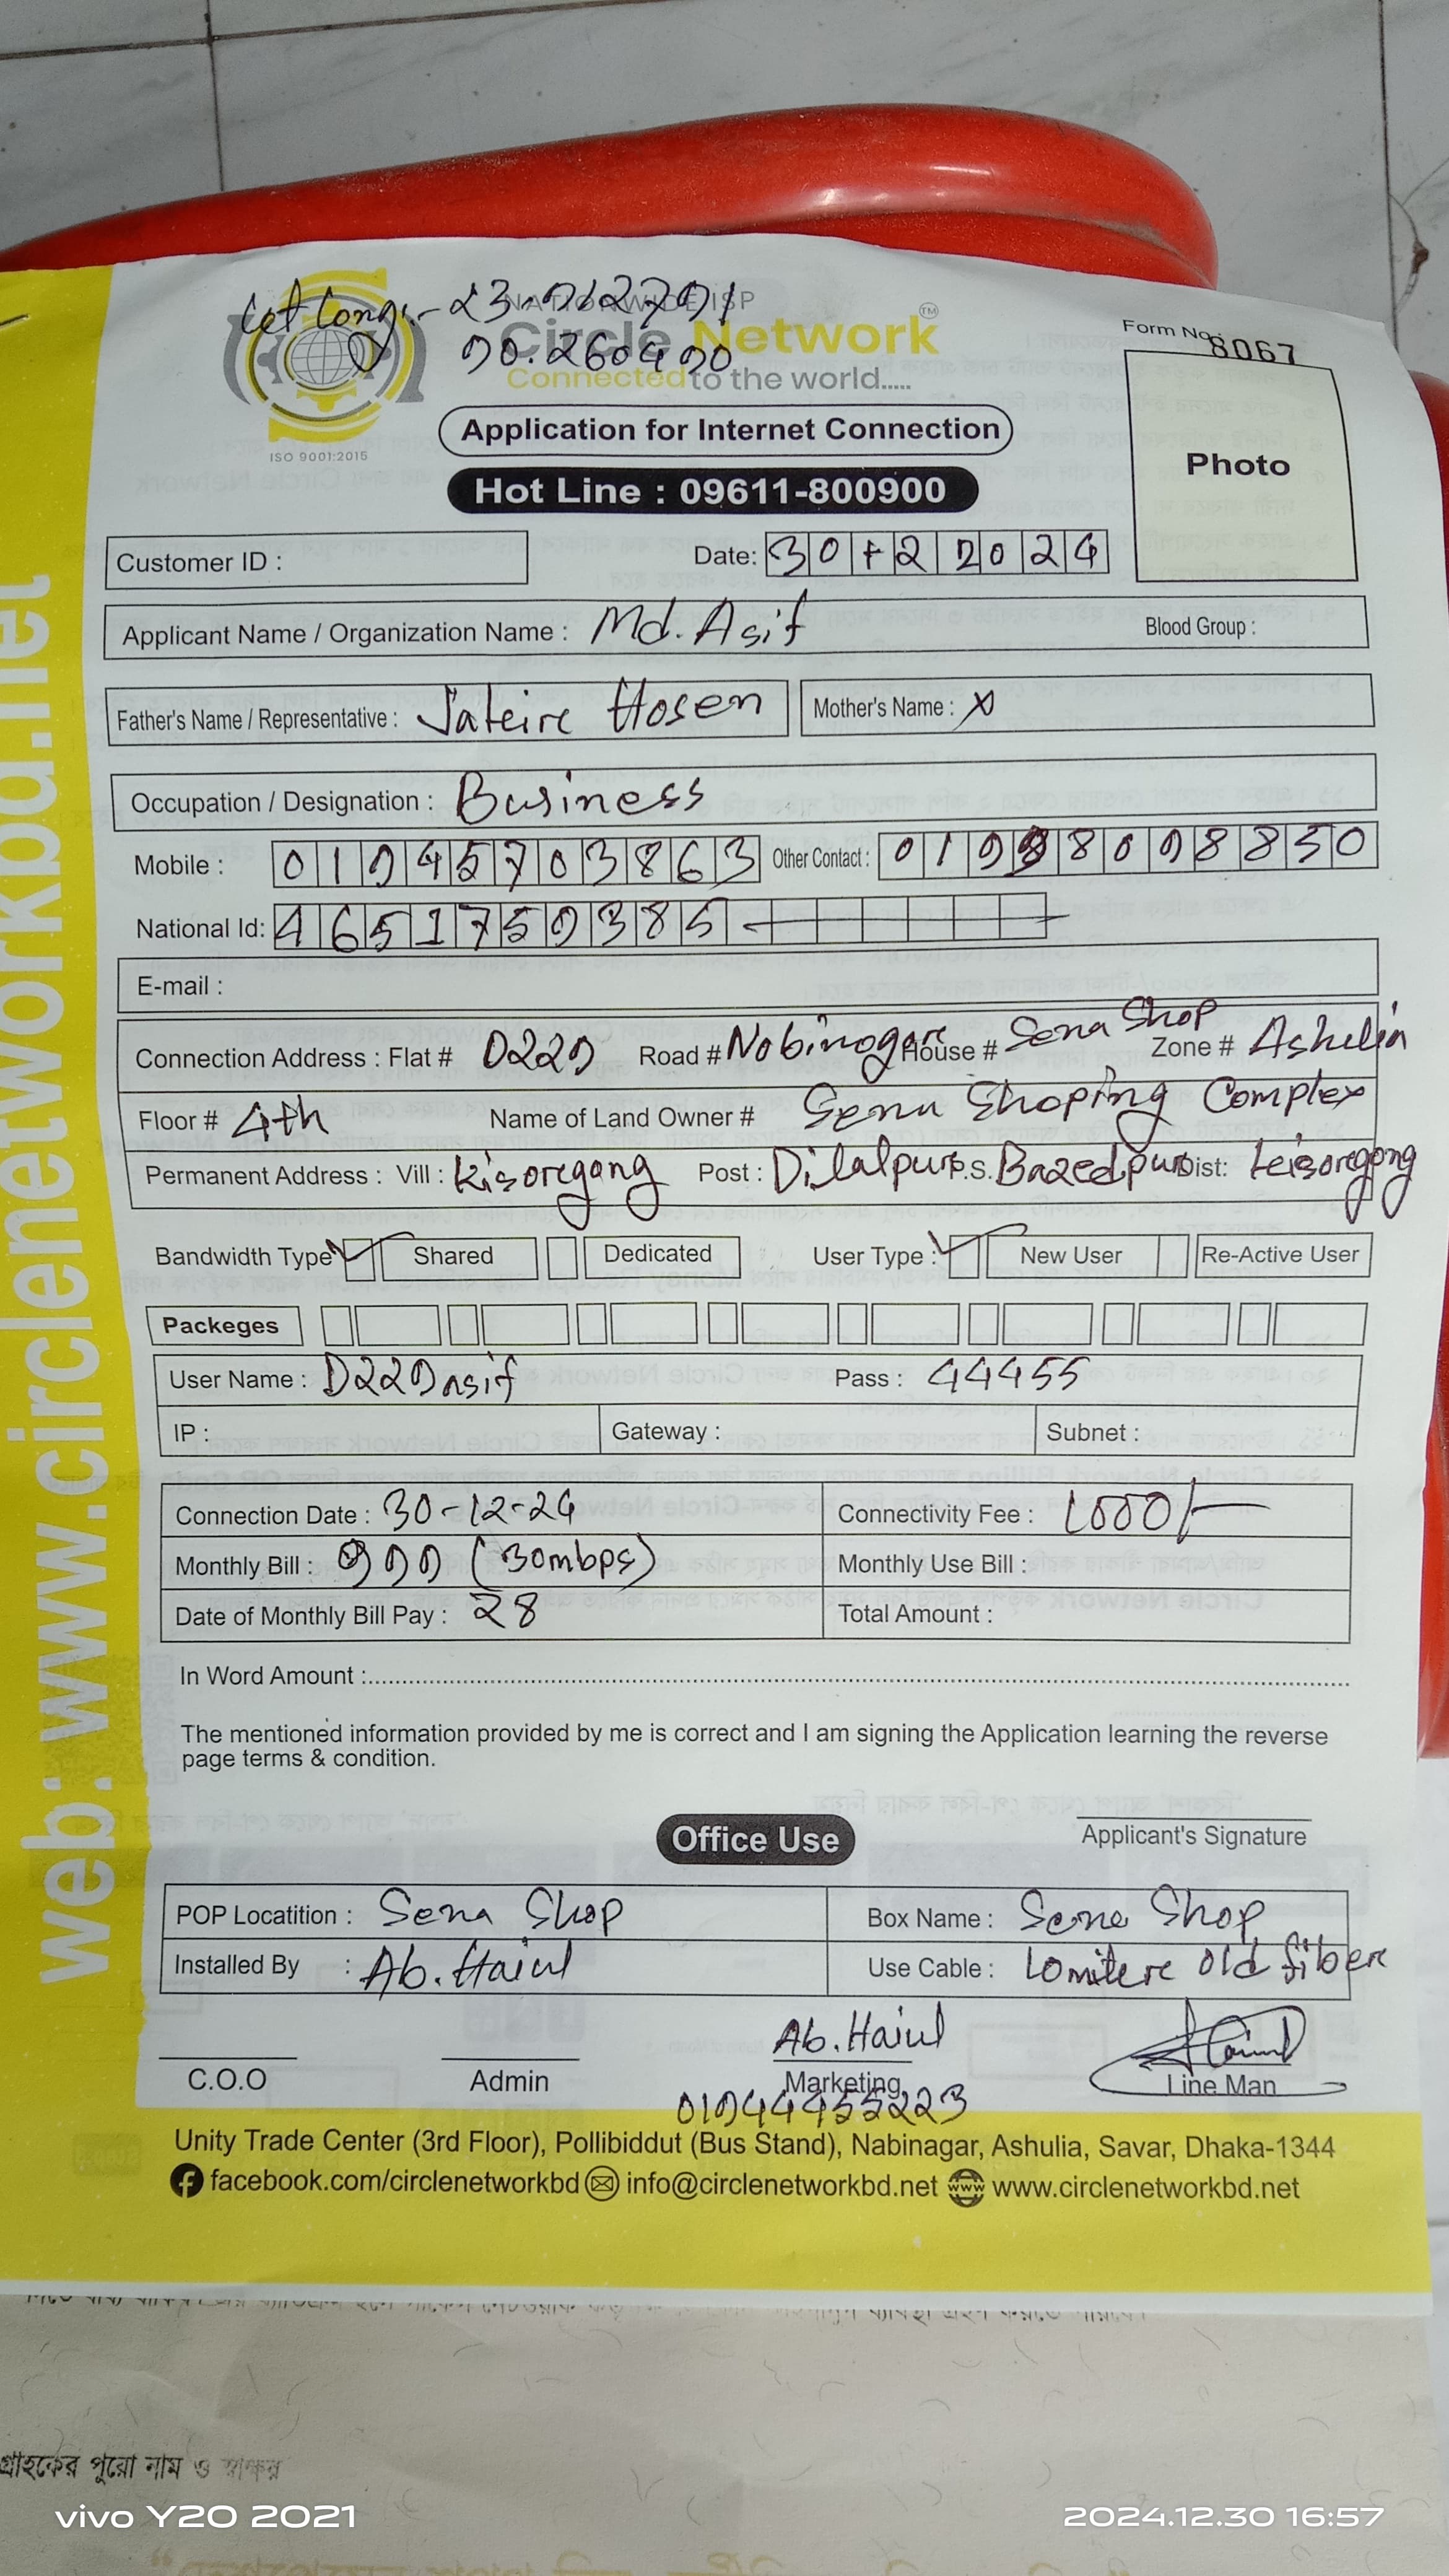 Let Long:- 23.9127791
90.260490
NATIONWIDE ISP
Circle Network TM
Connected to the world.....
ISO 9001:2015
Form No: 8067
Photo
Application for Internet Connection
Hot Line : 09611-800900
Customer ID :
Date: 30 12 2024
Applicant Name / Organization Name : Md. Asif Blood Group :
Father's Name / Representative : Hosen Mother's Name : X
Occupation / Designation : Business
Mobile : 01945703863 Other Contact : 01998098850
National Id: 4651759385
E-mail :
Connection Address : Flat # D229 Road # Nobinogor House # Sena Shop Zone # Ashulia
Floor # 4th Name of Land Owner # Sena Shoping Complex
Permanent Address : Vill : Kisoregong Post : Dilalpur P.S. Bazedpur Dist: Keisoregong
Bandwidth Type Shared Dedicated User Type : New User Re-Active User
Packeges
User Name : D229asif Pass : 44455
IP : Gateway : Subnet :
Connection Date : 30-12-24 Connectivity Fee : 1000/-
Monthly Bill : 999 (30mbps) Monthly Use Bill :
Date of Monthly Bill Pay : 28 Total Amount :
In Word Amount :
The mentioned information provided by me is correct and I am signing the Application learning the reverse
page terms & condition.
Applicant's Signature
Office Use
POP Locatition : Sena Shop Box Name : Sena Shop
Installed By : Ab. Haiul Use Cable : 10 mitere old fibere
Ab. Haiul
C.O.O Admin Marketing Line Man
01944455223
Unity Trade Center (3rd Floor), Pollibiddut (Bus Stand), Nabinagar, Ashulia, Savar, Dhaka-1344
facebook.com/circlenetworkbd info@circlenetworkbd.net www.circlenetworkbd.net
web: www.circlenetworkbd.net
গ্রাহকের পুরো নাম ও স্বাক্ষর
vivo Y20 2021
2024.12.30 16:57